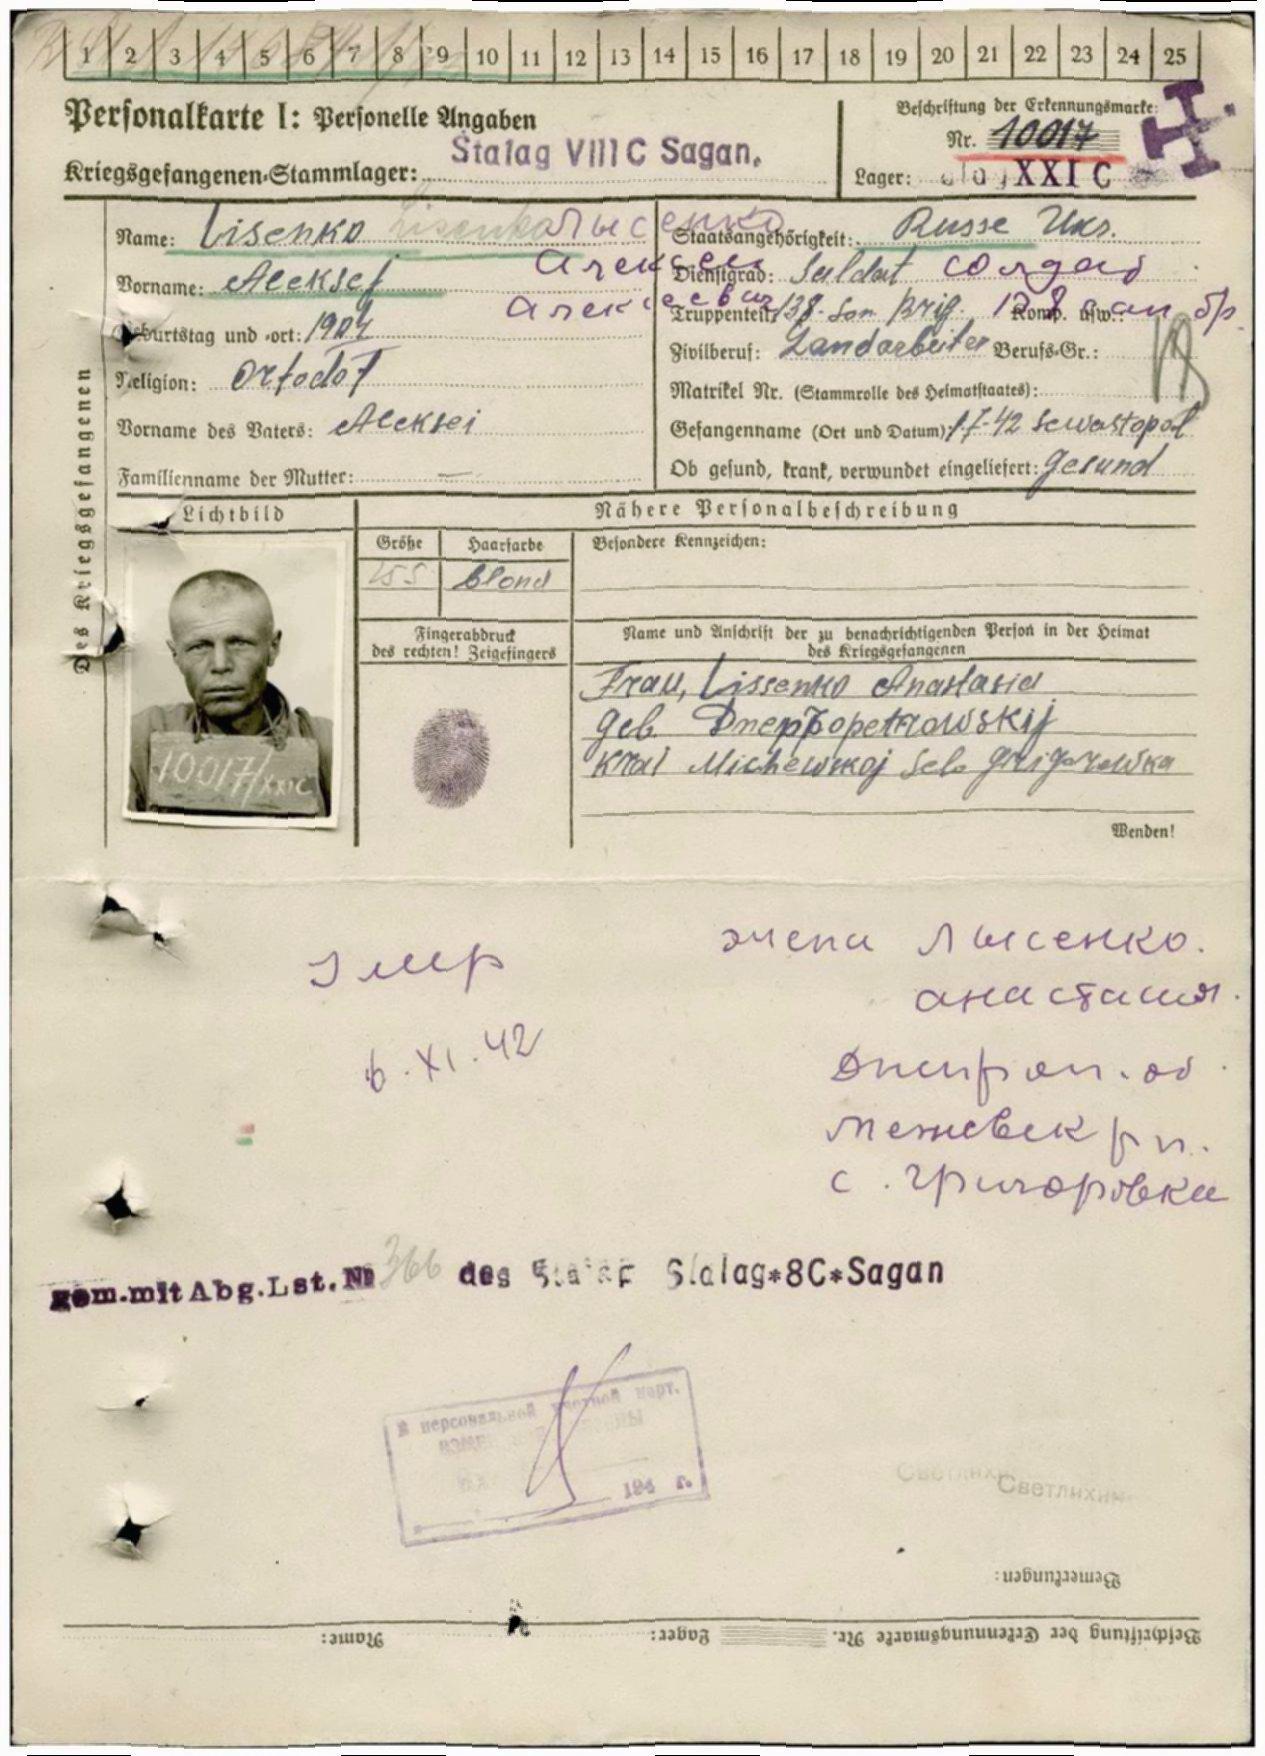 1 2 3 4 5 6 7 8 9 10 11 12 13 14 15 16 17 18 19 20 21 22 23 24 25
Personalkarte I: Personelle Angaben
Beschriftung der Erkennungsmarke:
Nr. 10017
Stalag VIII C Sagan.
Kriegsgefangenen-Stammlager:
Lager: XXI C
Des Kriegsgefangenen
Name: Lisenko Lisenko Лысенко
Staatsangehörigkeit: Russe Ukr.
Vorname: Aleksej Алексей
Dienstgrad: Soldat солдат
Алексеевич
Geburtstag und -ort: 1904
Truppenteil: 138. San brig. Komp. usw.: 138 сан бр
Religion: Ortodox
Zivilberuf: Landarbeiter Berufs-Gr.:
Matrikel Nr. (Stammrolle des Heimatstaates):
Vorname des Vaters: Aleksei
Gefangenname (Ort und Datum) 1.7-42 Sewastopol
Familienname der Mutter: —
Ob gesund, krank, verwundet eingeliefert: Gesund
Lichtbild
Nähere Personalbeschreibung
Größe Haarfarbe
Besondere Kennzeichen:
155 blond
Fingerabdruck
des rechten! Zeigefingers
Name und Anschrift der zu benachrichtigenden Person in der Heimat
des Kriegsgefangenen
Frau, Lissenko Anastasia
Geb. Dneppopetrowskij
Krai Michewskoj Selo Grigorowka
10017/XXIC
Wenden!
умер
6.XI.42
жена Лысенко.
Анастасия.
Днепроп. об.
Межевск рн.
с. Григоровка
gem.mit Abg.Lst.№ 366 des Stalag*8C*Sagan
В персональной учетной карт.
194 г.
Светлихин
Bemerkungen:
Beschriftung der Erkennungsmarke Nr. Lager: Name: